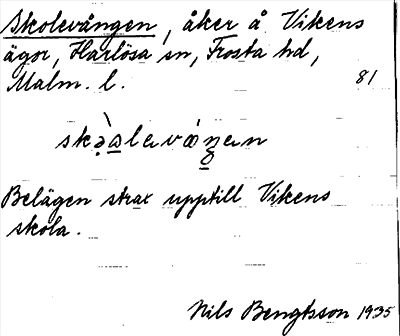 Skolevången, åker å Vikens
ägor, Harlösa sn, Frosta hd,
Malm. l. 81
Belägen strax upptill Vikens
skola.
Nils Bengtsson 1935